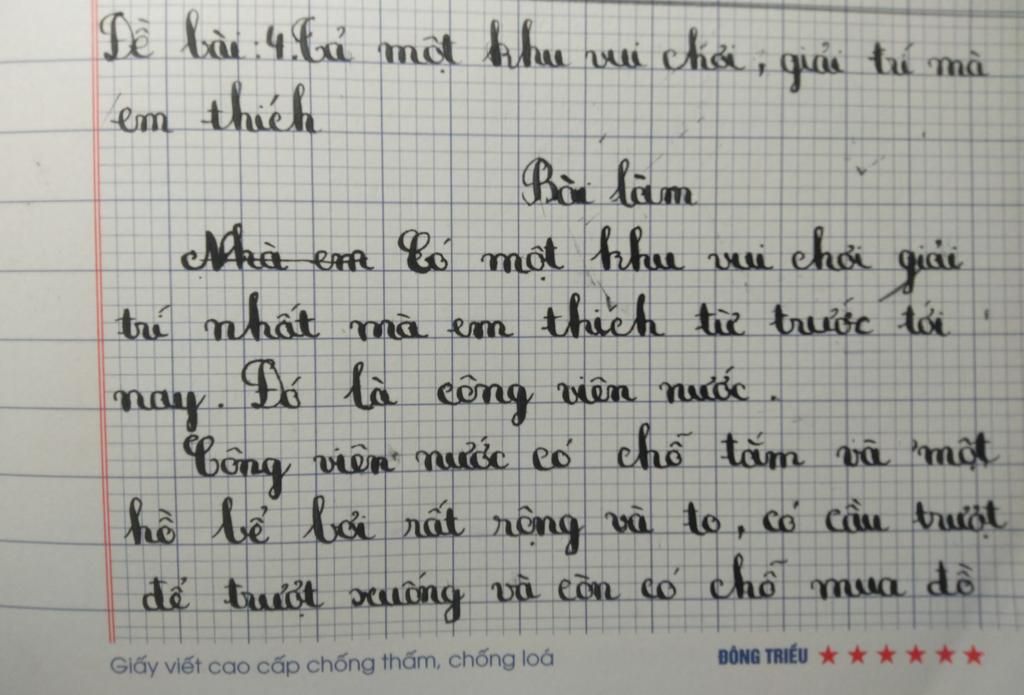 Đề bài: 4. Tả một khu vui chơi, giải trí mà
em thích
Bài làm
Nhà em Có một khu vui chơi giải
trí nhất mà em thích từ trước tới
nay. Đó là công viên nước.
Công viên nước có chỗ tắm và một
hồ bể bơi rất rộng và to, có cầu trượt
để trượt xuống và còn có chỗ mua đồ
Giấy viết cao cấp chống thấm, chống loá
ĐÔNG TRIỀU ★ ★ ★ ★ ★ ★